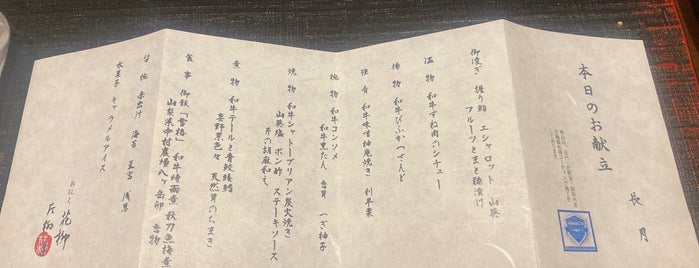 本日のお献立
長月
御凌ぎ 握り鮨 エシャロット 山葵
フルーツとまと麹漬け
温物 和牛すね肉のシチュー
揚物 和牛びふかつさんど
強肴 和牛味噌柚庵焼き 利平栗
椀物 和牛コンソメ
和牛黒たん 香茸 へぎ柚子
焼物 和牛シャトーブリアン炭火焼き
山葵塩 ポン酢 ステーキソース
芹の胡麻和え
煮物 和牛テールと青鮫鱶鰭
旬野菜色々 天然茸のちまき
食事 御飯「雪椿」 和牛時雨煮 秋刀魚梅煮
山梨県中村農場八ヶ岳卵 香物
留椀 赤出汁
水菓子 キャラメルアイス
おにく 花柳
片柳